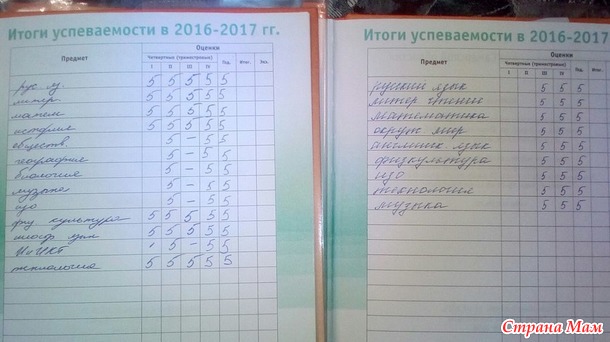 Итоги успеваемости в 2016-2017 гг.
Предмет
Оценки
Четвертные (триместровые) Год. Итог. Экз.
I II III IV
рус яз. 5 5 5 5 5
литер. 5 5 5 5 5
матем 5 5 5 5 5
история 5 5 5 5 5
обществ. 5 - 5 5
география 5 - 5 5
биология 5 - 5 5
музыка 5 - 5 5
изо 5 - 5 5
физ культура 5 5 5 5 5
5 5 5 5 5
И и ИКТ 5 - 5 5
технология 5 5 5 5 5
Итоги успеваемости в 2016-2017
Предмет
Оценки
Четвертные (триместровые) Год. Итог. Экз.
I II III IV
русский язык 5 5 5
литер чтение 5 5 5
математика 5 5 5
окруж мир 5 5 5
английск язык 5 5 5
физкультура 5 5 5
изо 5 5 5
технология 5 5 5
музыка 5 5 5
Страна Мам